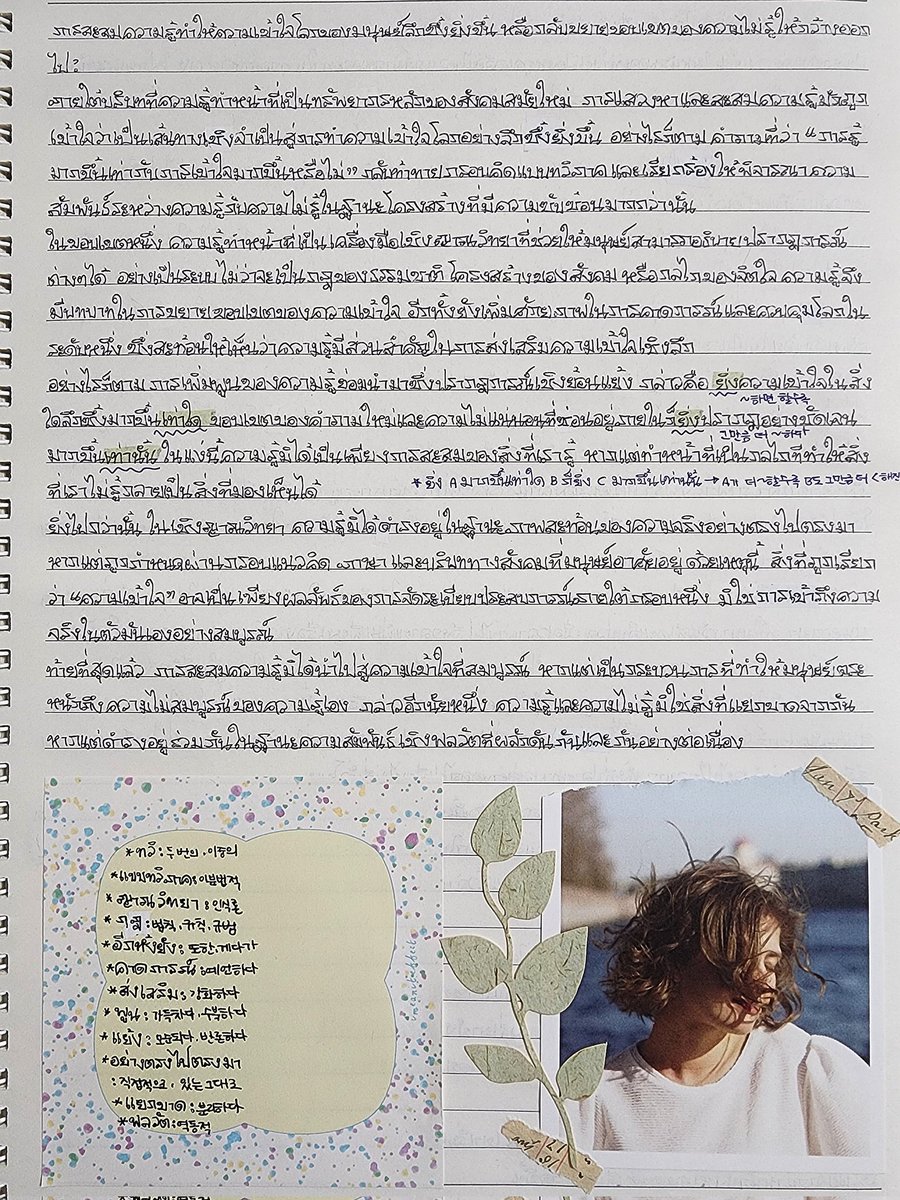 การสะสมความรู้ทำให้ความเข้าใจโลกของมนุษย์ลึกซึ้งยิ่งขึ้น หรือกลับขยายขอบเขตของความไม่รู้ให้กว้างออก
ไป?
ภายใต้บริบทที่ความรู้ทำหน้าที่เป็นทรัพยากรหลักของสังคมสมัยใหม่ การแสวงหาและสะสมความรู้มักถูก
เข้าใจว่าเป็นเส้นทางเชิงจำเป็นสู่การทำความเข้าใจโลกอย่างลึกซึ้งยิ่งขึ้น อย่างไรก็ตาม คำถามที่ว่า “การรู้
มากขึ้นเท่ากับการเข้าใจมากขึ้นหรือไม่” กลับท้าทายกรอบคิดแบบทวิภาค และเรียกร้องให้พิจารณาความ
สัมพันธ์ระหว่างความรู้กับความไม่รู้ในฐานะโครงสร้างที่มีความซับซ้อนมากกว่านั้น
ในขอบเขตหนึ่ง ความรู้ทำหน้าที่เป็นเครื่องมือเชิงญาณวิทยาที่ช่วยให้มนุษย์สามารถอธิบายปรากฏการณ์
ต่างๆได้ อย่างเป็นระบบไม่ว่าจะเป็นกฎของธรรมชาติ โครงสร้างของสังคม หรือกลไกของจิตใจ ความรู้จึง
มีบทบาทในการขยายขอบเขตของความเข้าใจ อีกทั้งยังเพิ่มศักยภาพในการคาดการณ์ และควบคุมโลกใน
ระดับหนึ่ง ซึ่งสะท้อนให้เห็นว่าความรู้มีส่วนสำคัญในการส่งเสริมความเข้าใจเชิงลึก
อย่างไรก็ตาม การเพิ่มพูนของความรู้ย่อมนำมาซึ่งปรากฏการณ์เชิงย้อนแย้ง กล่าวคือ ยิ่งความเข้าใจในสิ่ง
~하면 할수록
ใดลึกซึ้งมากขึ้นเท่าใด ขอบเขตของคำถามใหม่และความไม่แน่นอนที่ซ่อนอยู่ภายในก็ยิ่งปรากฏอย่างชัดเจน
그만큼 더 ~하다
มากขึ้นเท่านั้น ในแง่นี้ความรู้มิได้เป็นเพียงการสะสมของสิ่งที่เรารู้ หากแต่ทำหน้าที่เป็นกลไกที่ทำให้สิ่ง
ที่เราไม่รู้กลายเป็นสิ่งที่มองเห็นได้
* ยิ่ง A มากขึ้นเท่าใด B ก็ยิ่ง C มากขึ้นเท่านั้น → A가 더 ~할수록 B도 그만큼 더 C해진
ยิ่งไปกว่านั้น ในเชิงญาณวิทยา ความรู้มิได้ดำรงอยู่ในฐานะภาพสะท้อนของความจริงอย่างตรงไปตรงมา
หากแต่ถูกกำหนดผ่านกรอบแนวคิด ภาษา และบริบททางสังคมที่มนุษย์อาศัยอยู่ ด้วยเหตุนี้ สิ่งที่ถูกเรียก
ว่า “ความเข้าใจ” อาจเป็นเพียงผลลัพธ์ของการจัดระเบียบประสบการณ์ภายใต้กรอบหนึ่ง มิใช่การเข้าถึงความ
จริงในตัวมันเองอย่างสมบูรณ์
ท้ายที่สุดแล้ว การสะสมความรู้มิได้นำไปสู่ความเข้าใจที่สมบูรณ์ หากแต่เป็นกระบวนการที่ทำให้มนุษย์ตระ
หนักถึงความไม่สมบูรณ์ของความรู้เอง กล่าวอีกนัยหนึ่ง ความรู้และความไม่รู้มิใช่สิ่งที่แยกขาดจากกัน
หากแต่ดำรงอยู่ร่วมกันในฐานะความสัมพันธ์เชิงพลวัตที่ผลักดันกันและกันอย่างต่อเนื่อง
*ทวิ: 두 번의, 이중의
*แบบทวิภาค: 이분법적
*ญาณวิทยา: 인식론
*กฎ: 법칙, 규칙, 규범
*อีกทั้งยัง: 또한, 게다가
*คาดการณ์: 예견하다
*ส่งเสริม: 강화하다
*พูน: 가득차다, 수북하다
*แย้ง: 모순되다, 반론하다
*อย่างตรงไปตรงมา
: 직접적으로, 있는 그대로
*แยกขาด: 분리하다
*พลวัต: 역동적